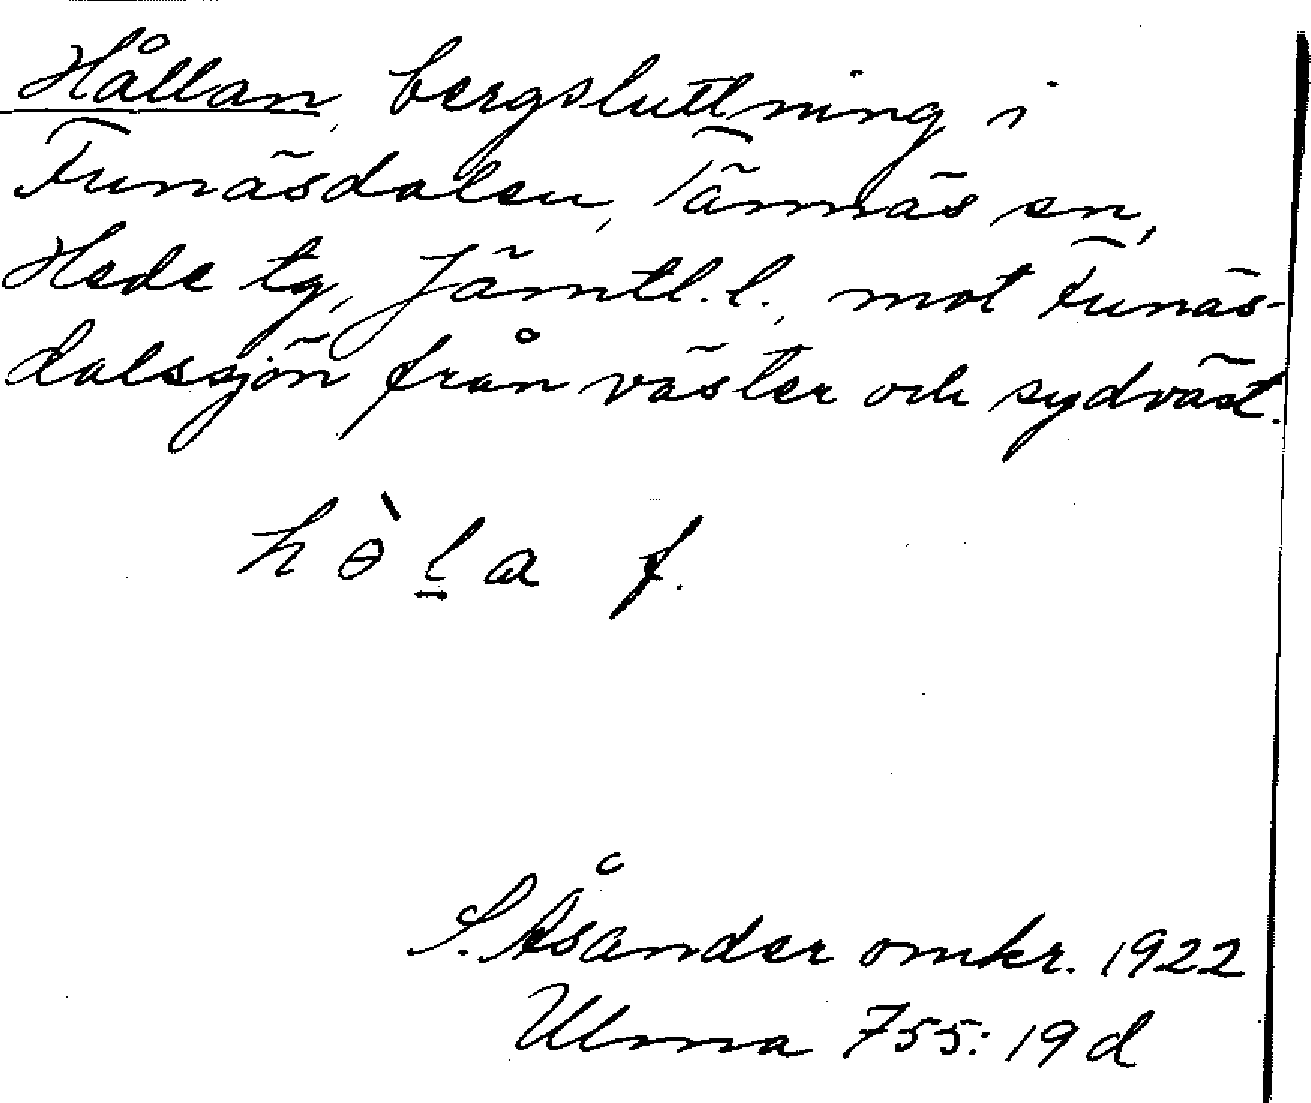 Hållan, bergsluttning i
Funäsdalen, Tännäs sn,
Hede tg, Jämtl. l., mot Funäs-
dalssjön från väster och sydväst.
hɵ̀l̠a f.
S. Åsander omkr. 1922
Ulma 755:19 d